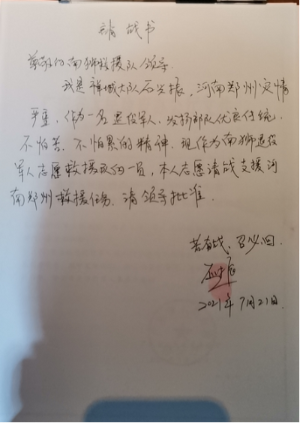 请战书
尊敬的南狮救援队领导
我是禅城大队石 振，河南郑州灾情
严重，作为一名退役军人，发扬部队优良传统，
不怕苦、不怕累的精神，现作为南狮退役
军人志愿救援队的一员，本人志愿请战支援河
南郑州救援任务，请领导批准。
若有战，召必回
2021年7月21日